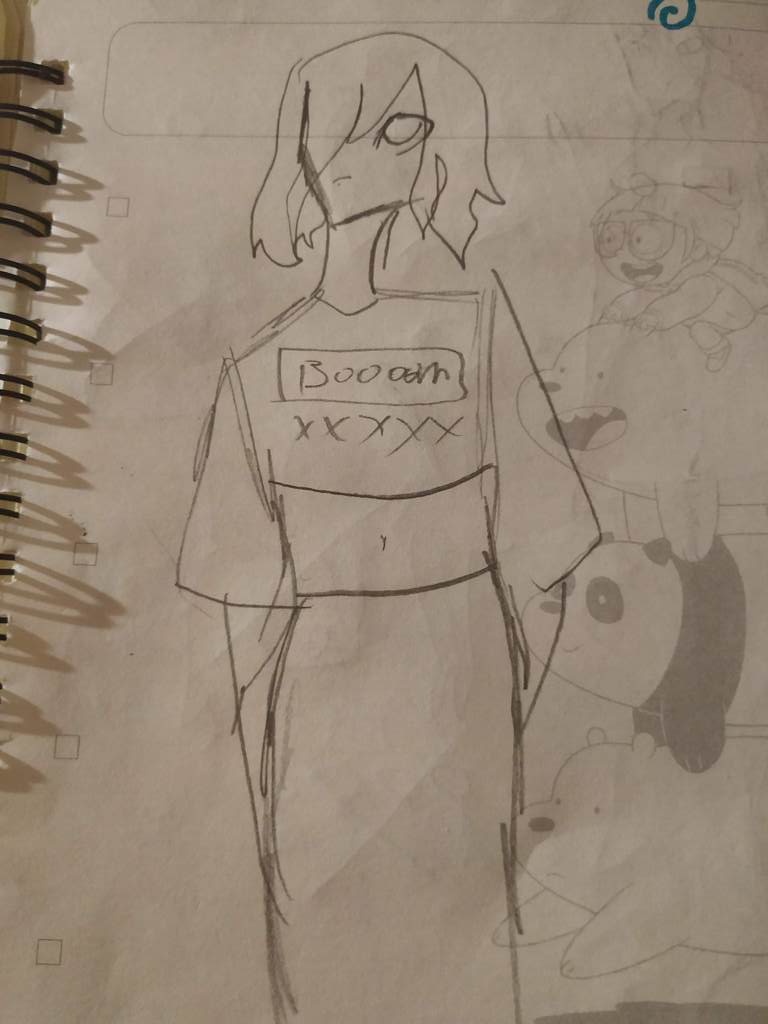 Booom
XXXXX